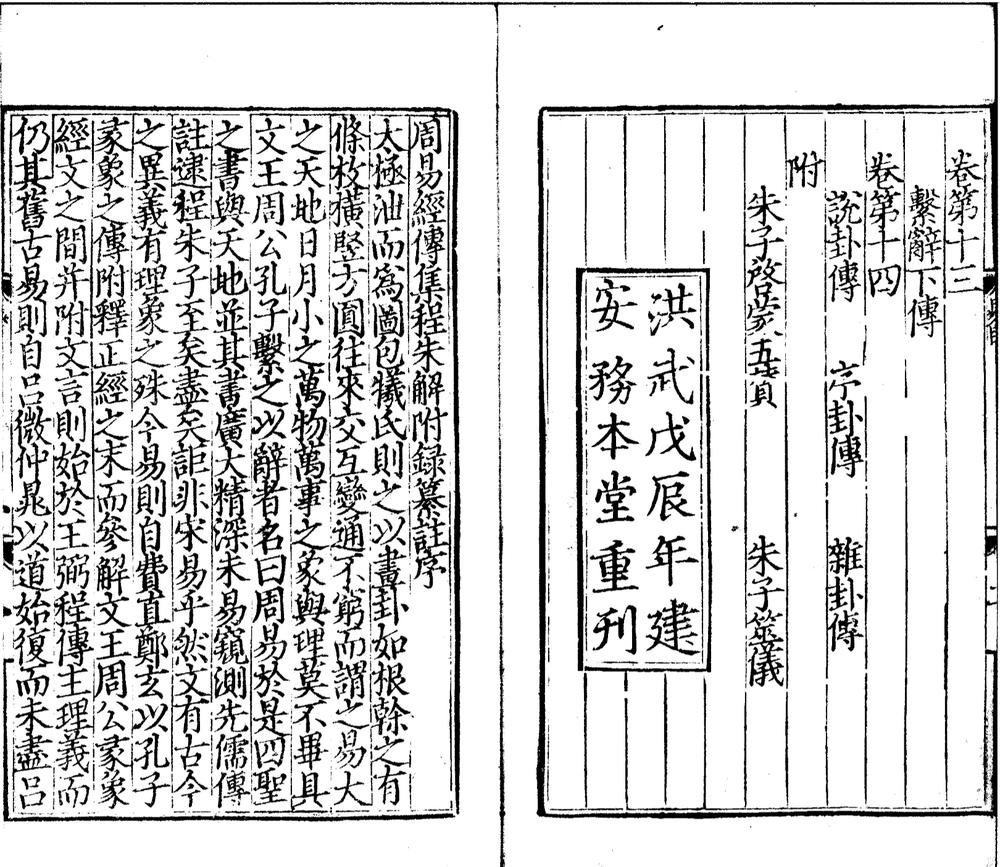 卷第十三
繫辭下傳
卷第十四
說卦傳 序卦傳 雜卦傳
附
朱子啓蒙五贊 朱子筮儀
洪武戊辰年建
安務本堂重刊
周易經傳集程朱解附録纂註序
太極洫而為圖包犧氏則之以畫卦如根榦之有
條枚橫竪方圓往來交互變通不窮而謂之易大
之天地日月小之萬物萬事之象與理莫不畢具
文王周公孔子繫之以辭者名曰周易於是四聖
之書與天地並其書廣大精深未易窺測先儒傳
註逮程朱子至矣盡矣詎非宋易乎然文有古今
之異義有理象之殊今易則自費直鄭玄以孔子
彖象之傳附釋正經之末而參解文王周公彖象
經文之間并附文言則始於王弼程傳主理義而
仍其舊古易則自吕微仲晁以道始復而未盡吕